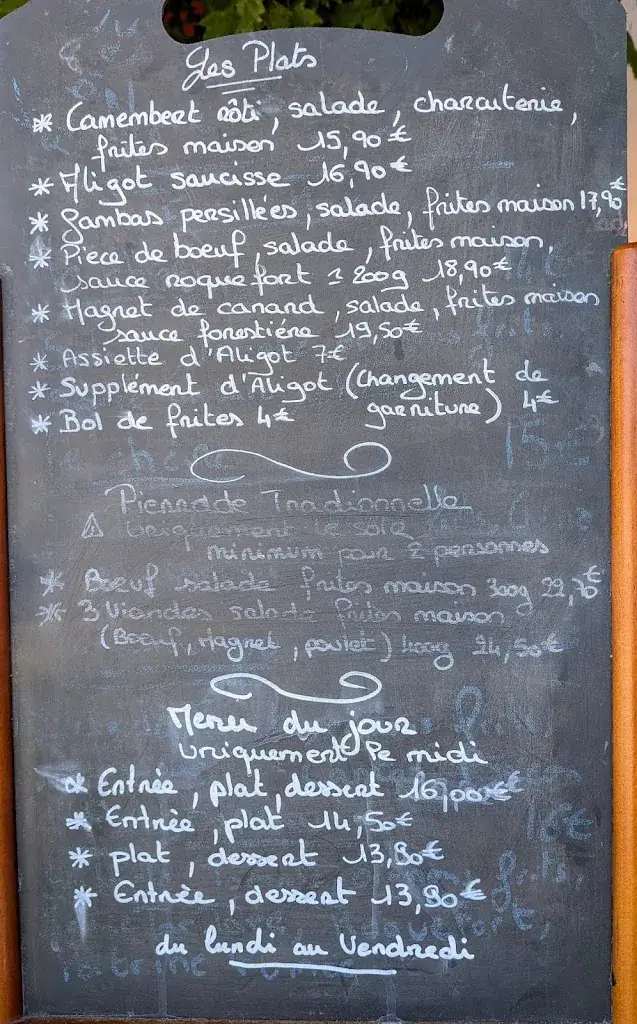 Les Plats
* Camembert rôti, salade, charcuterie,
frites maison 15,90€
* Aligot saucisse 16,90€
* Gambas persillées, salade, frites maison 17,90€
* Pièce de boeuf, salade, frites maison,
sauce roquefort ± 200g 18,90€
* Magret de canard, salade, frites maison
sauce forestière 19,50€
* Assiette d'Aligot 7€
* Supplément d'Aligot (changement de
garniture) 4€
* Bol de frites 4€
Pierrade Tradionnelle
⚠ Uniquement le soir
minimum pour 2 personnes
* Boeuf salade frites maison 300g
* 3 Viandes salade frites maison
(Boeuf, Magret, poulet) 400g 24,50€
Menu du jour
Uniquement le midi
* Entrée, plat, dessert 16,00€
* Entrée, plat 14,50€
* plat, dessert 13,90€
* Entrée, dessert 13,90€
du lundi au Vendredi